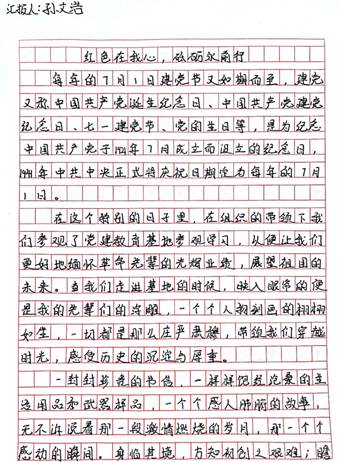 汇报人:孙艾浩
红色在我心，砥砺永前行
每年的7月1日建党节又如期而至，建党
又称中国共产党诞生纪念日、中国共产党建党
纪念日、七一建党节、党的生日等，是为纪念
中国共产党于1921年7月成立而设立的纪念日，
1941年中共中央正式将庆祝日期定为每年的7月
1日。
在这个特别的日子里，在组织的带领下我
们参观了党建教育基地参观学习，以便让我们
更好地缅怀革命先辈的光辉业绩，展望祖国的
未来。当我们走进基地的时候，映入眼帘的便
是我的先辈们的连雕，一个个人物刻画的栩栩
如生，一切都是那么庄严肃穆，带领我们穿越
时光，感受历史的沉淀与厚重。
一封封珍贵的书信，一样样饱经沧桑的生
活用品和武器样品，一个个感人肺腑的故事，
无不诉说着那一段激情燃烧的岁月，那一个个
感动的瞬间。身临其境，方知初创之艰难；瞻